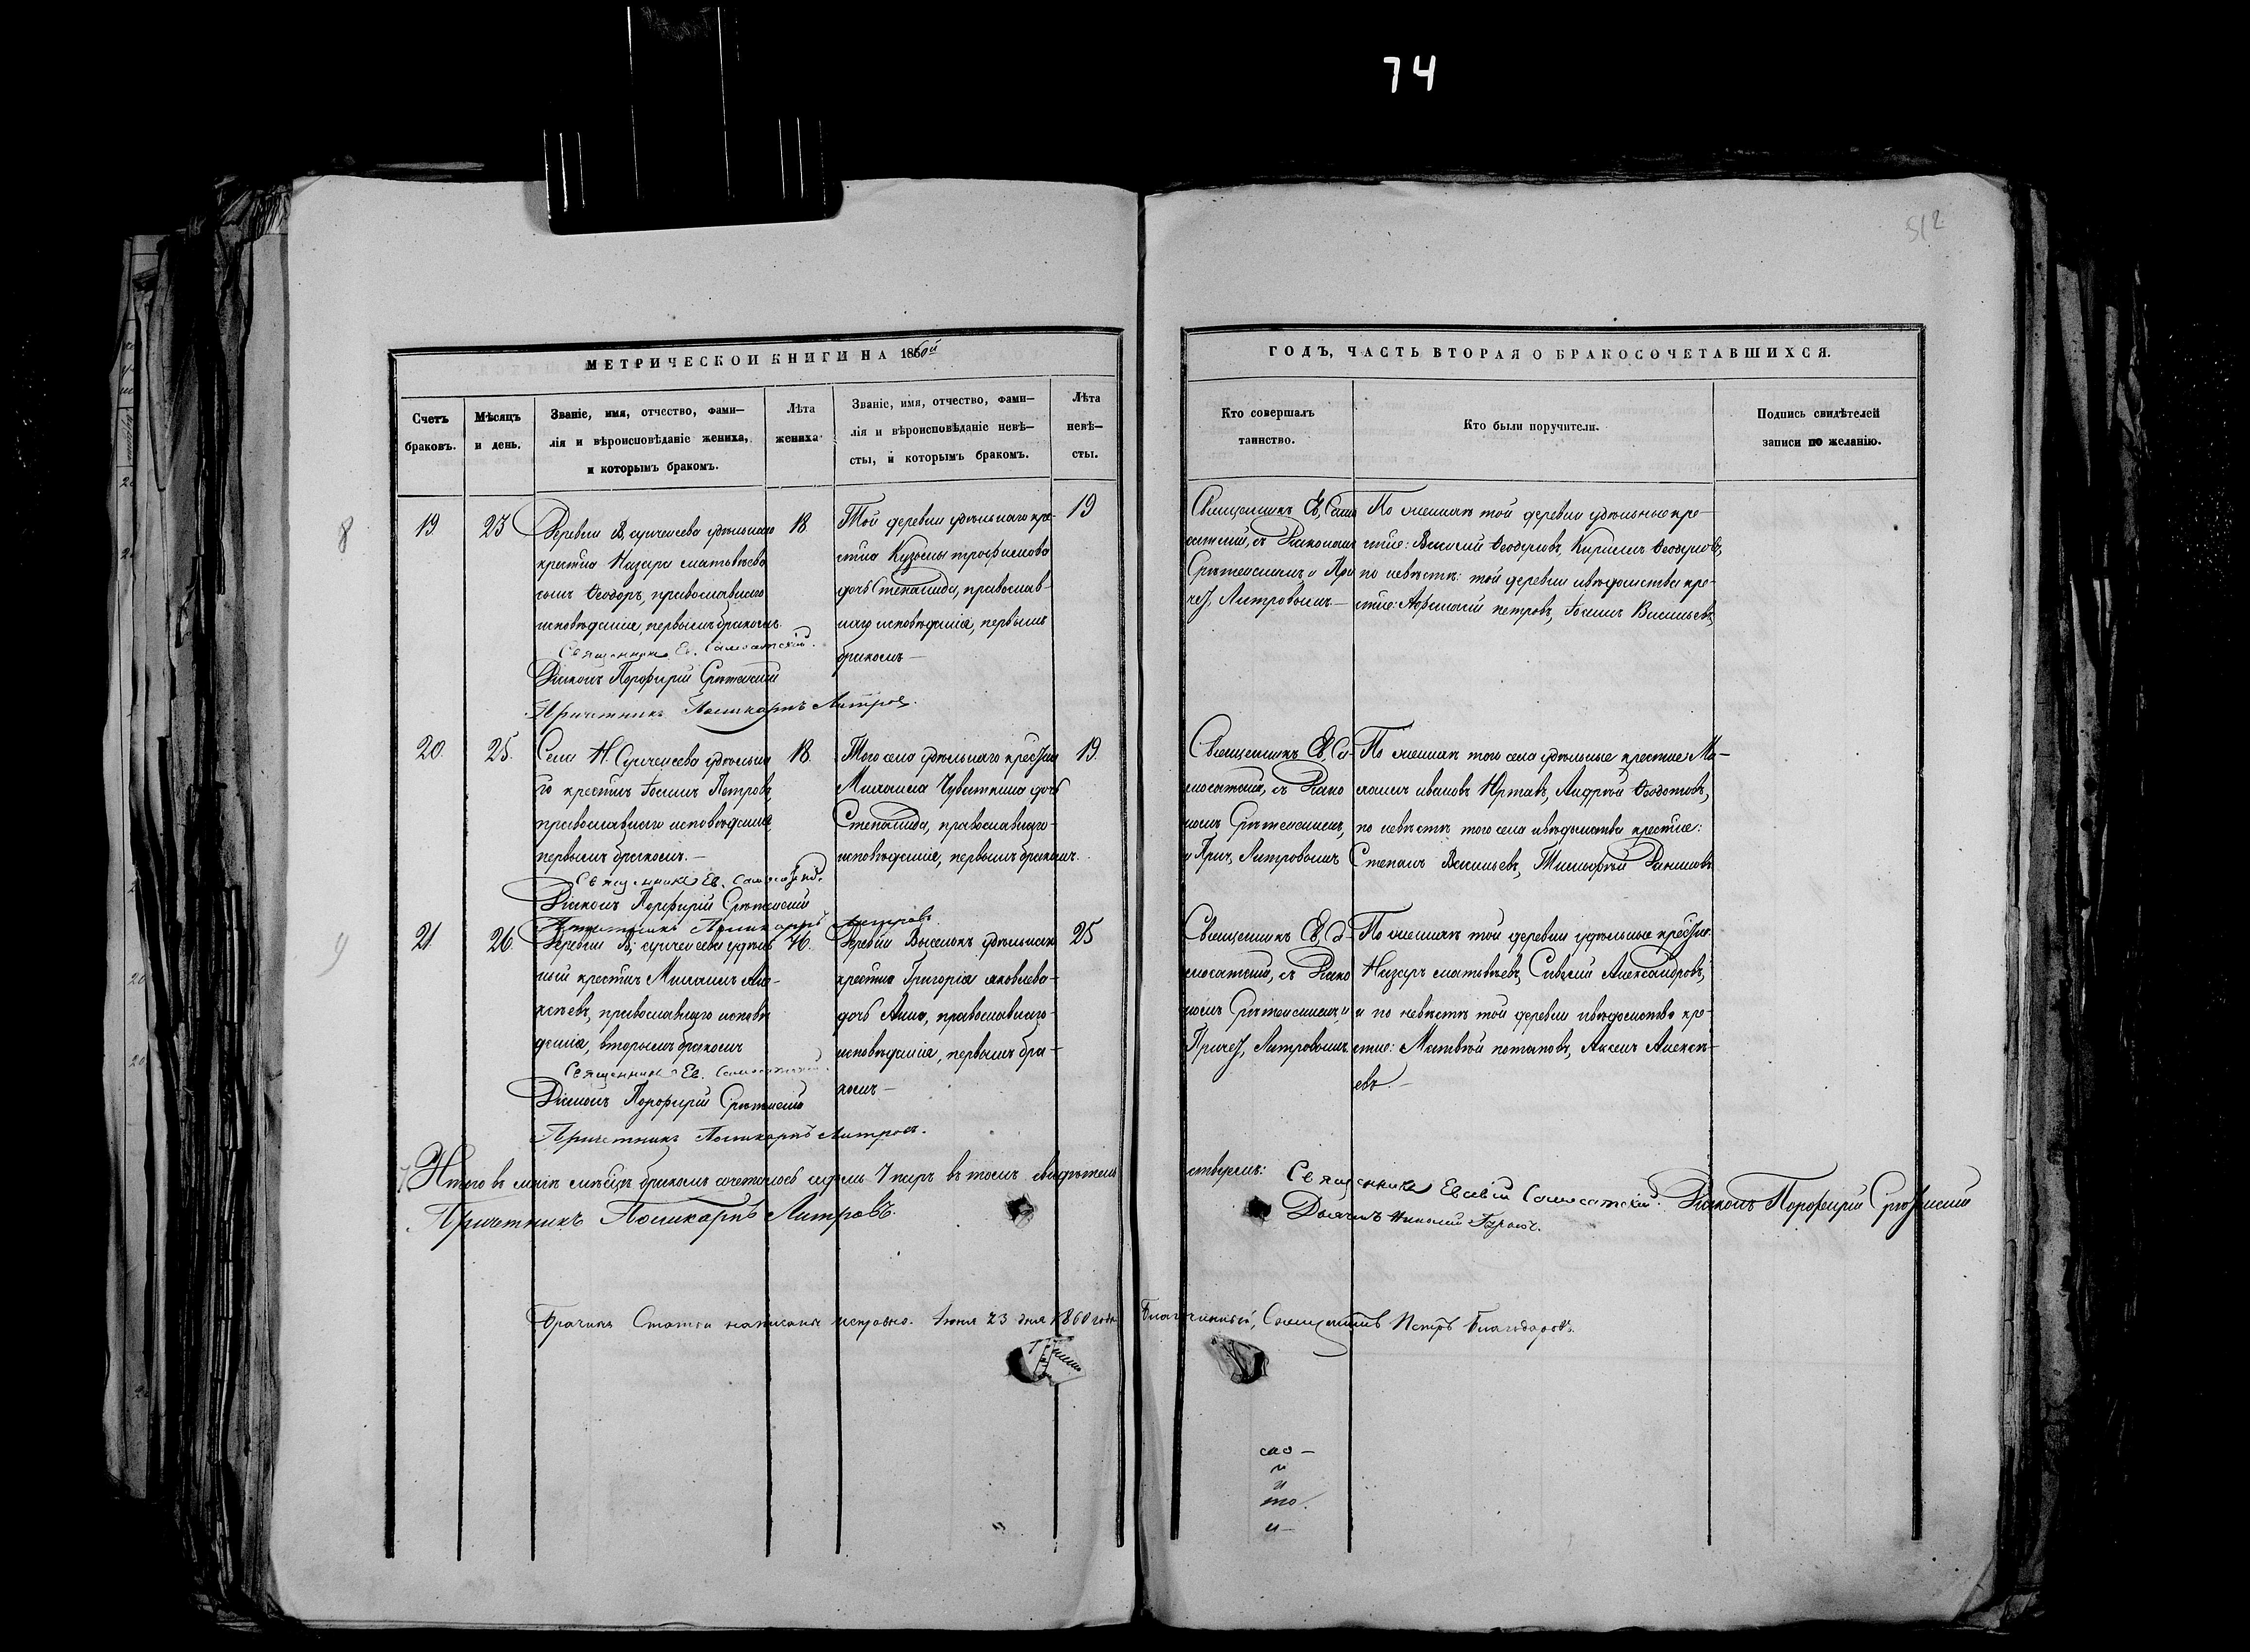 74
512
МЕТРИЧЕСКОЙ КНИГИ НА 1860й
ГОДЪ, ЧАСТЬ ВТОРАЯ О БРАКОСОЧЕТАВШИХСЯ.
Счетъ
браковъ.
Мѣсяцъ
и день.
Званіе, имя, отчество, фами—
лія и вѣроисповѣданіе жениха,
и которымъ бракомъ.
Лѣта
жениха
Званіе, имя, отчество, фами—
лія и вѣроисповѣданіе невѣ—
сты, и которымъ бракомъ.
Лѣта
невѣ—
сты.
Кто совершалъ
таинство.
Кто были поручители.
Подпись свидѣтелей
записи по желанію.
8
19
23
Деревни В, сунчелеева удѣльнаго
крестіна Назара матвѣева
сынъ Ѳеодоръ, православнаго
исповѣданія, первымъ бракомъ.
Священникъ Ев. Самосатскій.
Діаконъ Порфирій Срѣтенскій
Причетникъ Поликарпъ Литровъ.
18
Той деревни удѣльнаго кре-
стіна Кузьмы трофимова
дочь Степанида, православ-
наго исповѣданія, первымъ
бракомъ —
19
Священникъ Е, Само
сатскій, съ Діакономъ
Срѣтенскимъ и При
чет, Литровымъ —
По женихѣ той деревни удѣльные кре-
стіне: Василій Ѳеодоровъ, Кирилъ Ѳеодоровъ,
по невѣстѣ: той деревни и вѣдомства кре-
стіне: Афанасій петровъ, Іосифъ Васильевъ
20.
25.
Села Н. Сунчелеева удѣльна
го крестінъ Іосифъ Петровъ,
православнаго исповѣданія,
первымъ бракомъ. —
Священникъ Ев. Самосатскій.
Діаконъ Порфирій Срѣтенскій
Причетникъ Поликарпъ Литровъ
18.
Того села удѣльнаго крестіна
Михаила Чувашкина дочь
Степанида, православнаго-
исповѣданія, первымъ бракомъ.
19.
Священникъ Ев, Са-
мосатскій, съ Діако
номъ Срѣтенскимъ,
и Прич, Литровымъ
По женихѣ того села удѣльные крестіне
ивановъ Андрей Ѳедотовъ,
по невѣстѣ того села и вѣдомства крестіне:
Степанъ Васильевъ, Тимофей Даниловъ
9
21.
26.
Деревни В; сунчелеева удѣль
ный крестінъ Михаилъ Але-
ксѣевъ, православнаго исповѣ
данія, вторымъ бракомъ
Священникъ Ев. Самосатскій.
Діаконъ Порфирій Срѣтенскій
Причетникъ Поликарпъ Литровъ.
46.
Деревни Выселокъ удѣльнаго
крестіна Григорія яковлева-
дочь Анна, православнаго-
исповѣданія, первымъ бра-
комъ —
25
Священникъ Ев, Са-
мосатскій, съ Діако
номъ Срѣтенскимъ и
Причет, Литровымъ
По женихѣ той деревни удѣльные крестіне
Назаръ матвѣевъ, Савелій Александровъ,
и по невѣстѣ той деревни и вѣдомства кре-
стіне: Матвей потаповъ, Алексѣ-
евъ. —
Итого в маіѣ мѣсяцѣ бракомъ сочеталось седмь 7 паръ въ томъ свидѣтель
ствуемъ: Священникъ Евсевій Самосатскій. Діаконъ Порфирій Срѣтенскій
Причетникъ Поликарпъ Литровъ.
Дьячекъ Николай
Брачныя Статьи написаны исправно. Іюня 23 дня 1860 года Благочинный, Священникъ Петръ Благодаровъ.